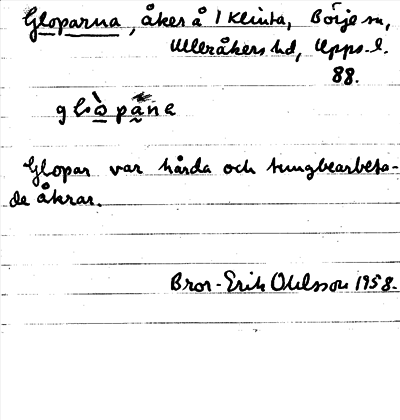 Gloparna, åker å 1 Klinta, Börje sn,
Ulleråkers hd, Upps. l.
88.
glòpana
Glopar var hårda och tungbearbeta-
de åkrar.
Bror-Erik Ohlsson 1958.